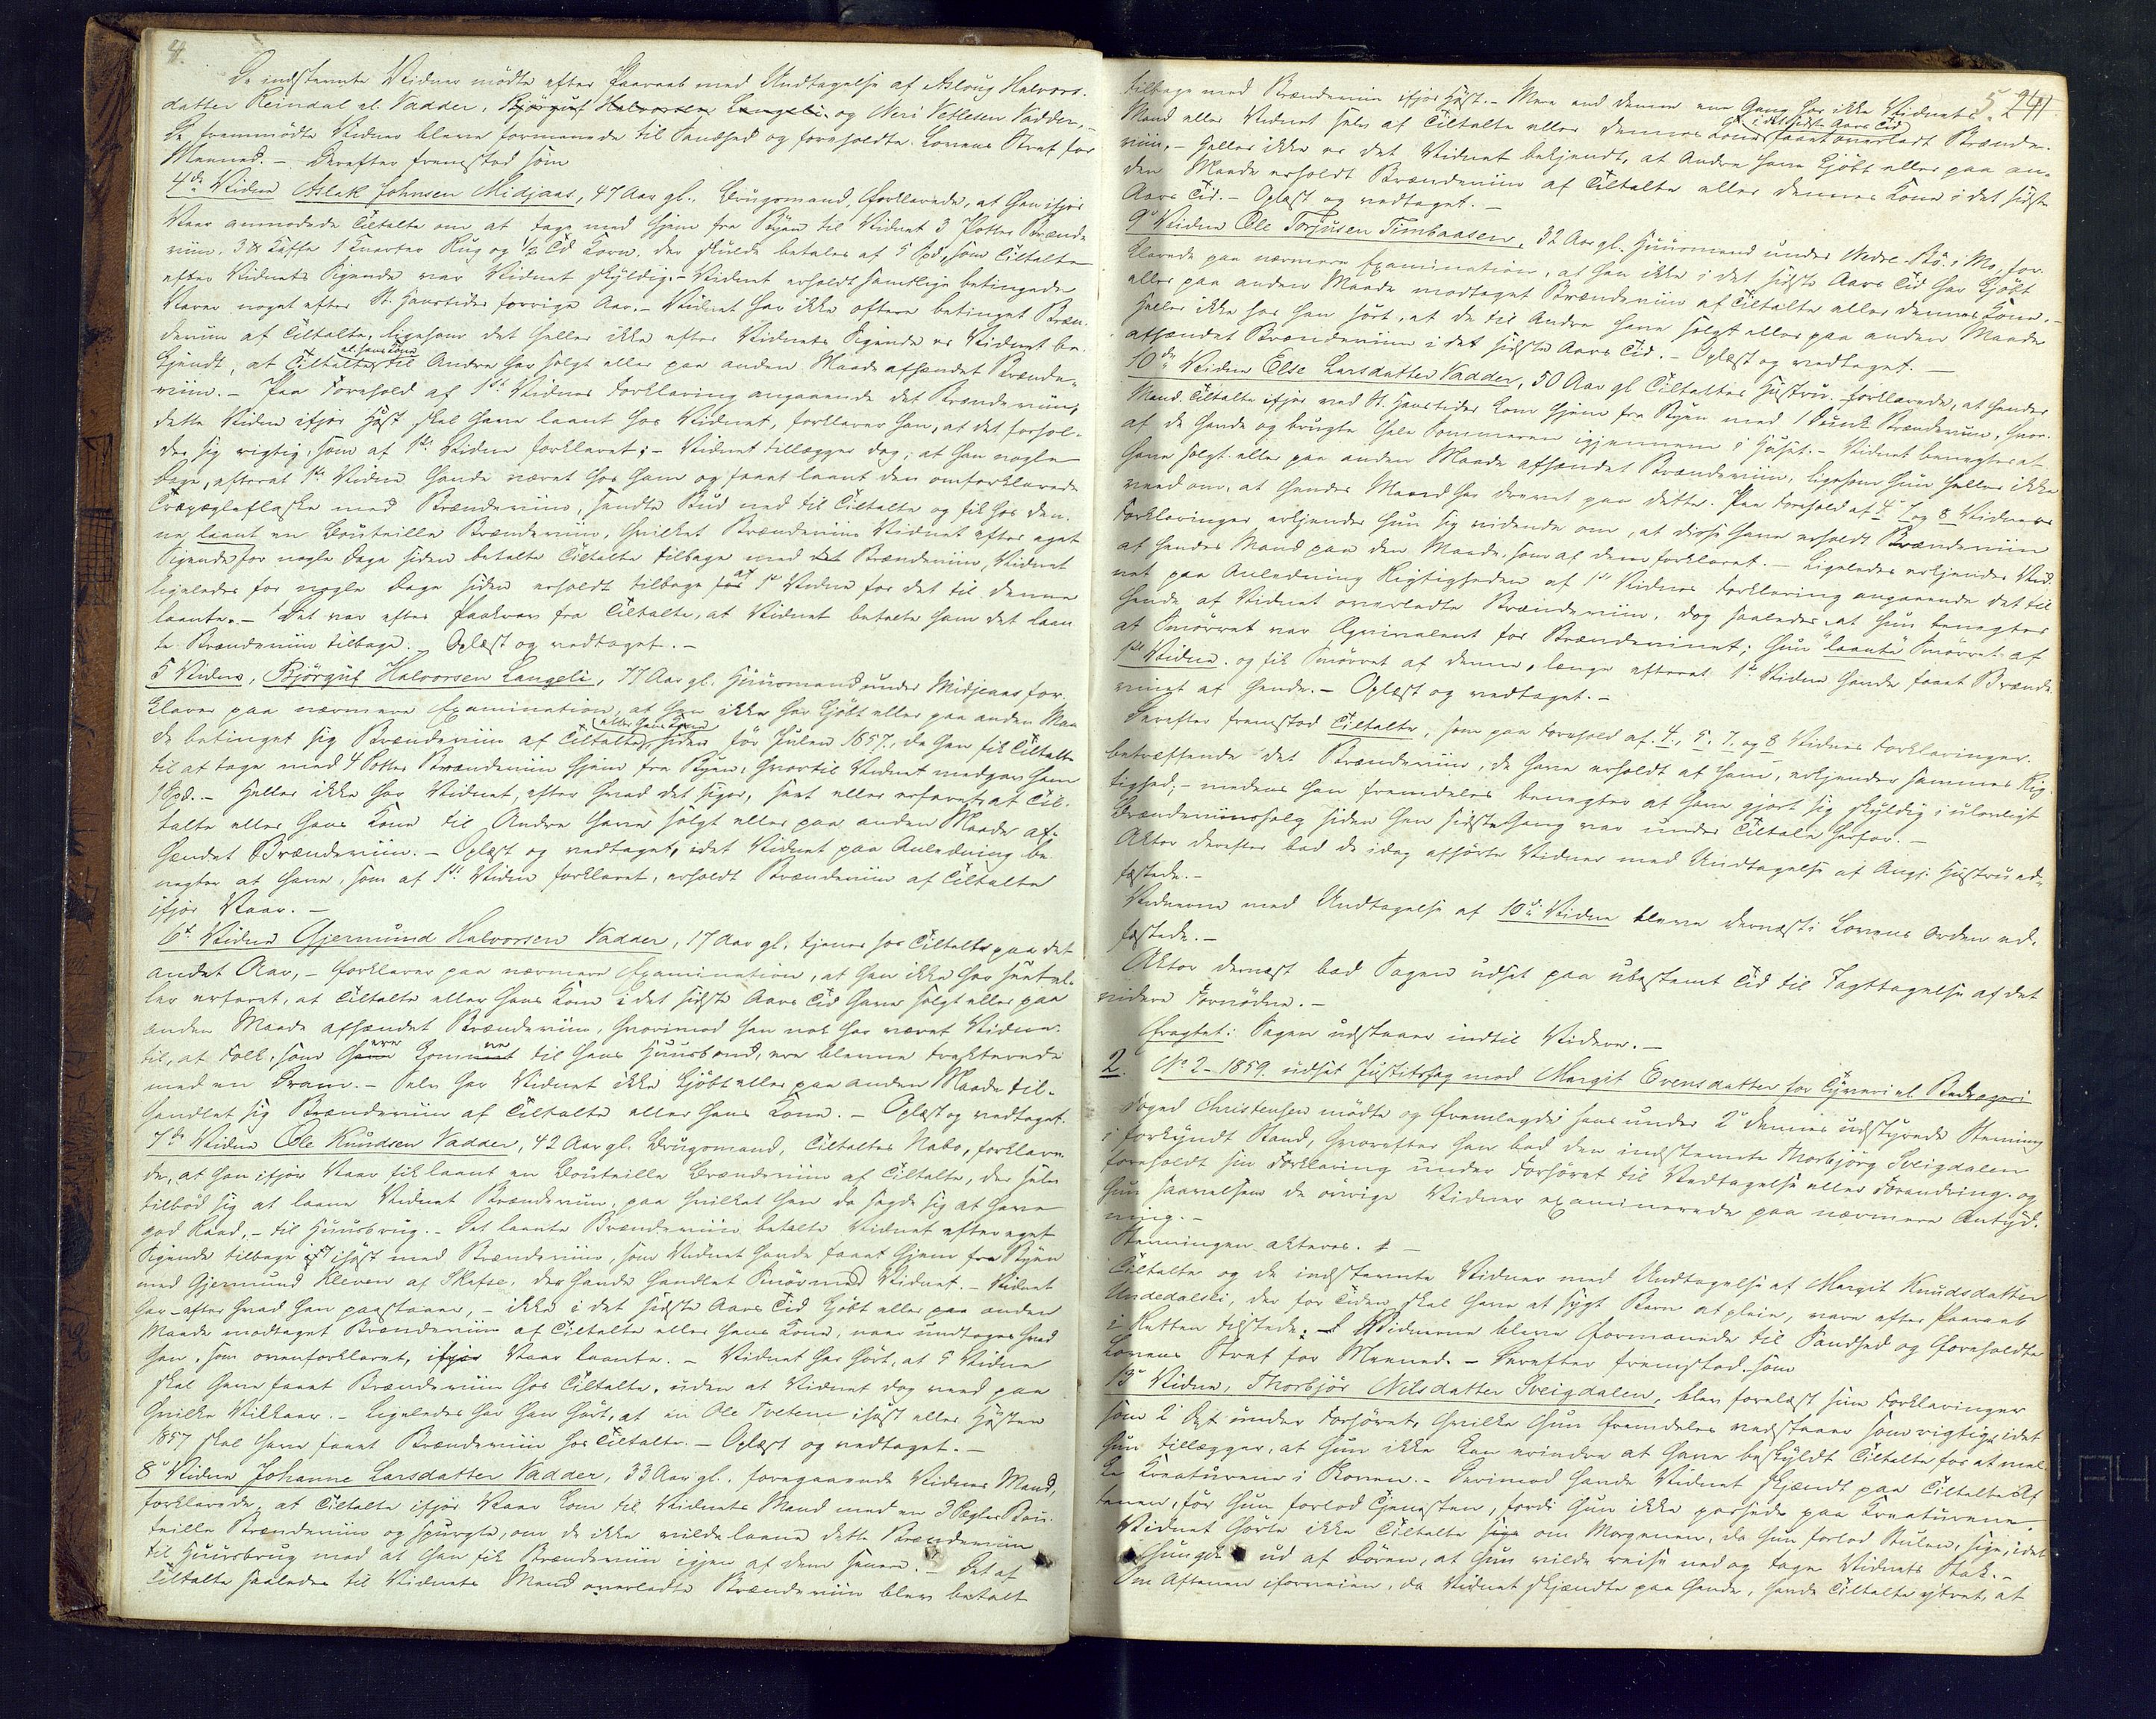 4.
De indstevnte Vidner mödte efter Paaraab med Undtagelse af Aslaug Halvors-
datter Reindal el. Vadder, Björgulf Halvorsen Langeli og Neri Vetlesen Vadder,-
De fremmödte Vidner bleve formanede til Sandhed og foreholdte Lovens Straf for
Meened. - Derefter fremstod som
4de Vidne Aslak Johnsen Midjaas, 47 Aar gl., Brugsmand, forklarede, at han ifjor
Vaar anmodede Tiltalte om at tage med hjem fra Byen til Vidnet 3 Potter Brænde
viin, 3 ℔ Kaffe 1 Kvarter Rug og 1/2 Td Korn, der skulde betales af 5 Spd, som Tiltalte
efter Vidnets Sigende var Vidnet skyldig.- Vidnet erholdt samtlige betingede
Varer noget efter St. Hanstider forrige Aar.- Vidnet har ikke oftere betinget Bræn-
deviin af Tiltalte, ligesom det heller ikke efter Vidnets Sigende er Vidnet be-
el. hans Kone
kjendt, at Tiltalte til Andre har solgt eller paa anden Maade afhændet Brænde-
viin. - Paa Forehold af 1ste Vidnes Forklaring angaaende det Brændeviin,
dette Vidne ifjor Höst skal have laant hos Vidnet, forklarer han, at det forhol-
der sig rigtig, som af 1ste Vidne forklaret; - Vidnet tillægger dog, at han nogle
Dage, efterat 1ste Vidne havde været hos ham og faaet laant den omforklarede
Trepægleflaske med Brændeviin, sendte Bud ned til Tiltalte og fik hos den-
ne laant en Bouteille Brændeviin, hvilket Brændeviin Vidnet efter eget
Sigende for nogle Dage siden betalte Tiltalte tilbage med det Brændeviin, Vidnet
ligeledes for nogle Dage siden erholdt tilbage for af 1ste Vidne for det til denne
laante. - Det var efter Paakrav fra Tiltalte, at Vidnet betalte ham det laan
te Brændeviin tilbage. - Oplæst og vedtaget. -
5 Vidne, Björgulf Halvorsen Langeli, 77 Aar gl. Huusmand under Midjaas for-
klarer paa nærmere Examination, at han ikke har kjöbt eller paa anden Maa
eller hans Kone
de betinget sig Brændeviin af Tiltalte siden för Julen 1857, da han fik Tiltalte
til at tage med 4 Potter Brændeviin hjem fra Byen, hvortil Vidnet medgav ham
1 Spd. - Heller ikke har Vidnet, efter hvad det siger, seet eller erfaret at Til-
talte eller hans Kone til Andre have solgt eller paa anden Maade af-
hændet Brændeviin. - Oplæst og vedtaget, idet Vidnet paa Anledning be-
negter at have, som af 1ste Vidne forklaret, erholdt Brændeviin af Tiltalte
ifjor Vaar. -
6te Vidne Gjermund Halvorsen Vadder, 17 Aar gl. tjener hos Tiltalte paa det
andet Aar, - forklarer paa nærmere Examination, at han ikke har seet el-
ler erfaret, at Tiltalte eller hans Kone i det sidste Aars Tid have solgt eller paa
anden Maade afhændet Brændeviin, hvorimod han nok har været Vidne
til, at Folk, som have ere kommet ne til hans Huusbond, ere blevne trakterede
med en Dram. - Selv har Vidnet ikke kjöbt eller paa anden Maade til-
handlet sig Brændeviin af Tiltalte eller hans Kone. - Oplæst og vedtaget.
7de Vidne Ole Knudsen Vadder, 42 Aar gl. Brugsmand, Tiltaltes Nabo, forklare
de, at han ifjor Vaar fik laant en Bouteille Brændeviin af Tiltalte, der selv
tilböd sig at laane Vidnet Brændeviin, paa hvilket han da sagde sig at have
god Raad, - til Huusbrug. - Det laante Brændeviin betalte Vidnet efter eget
Sigende tilbage ihöst med Brændeviin, som Vidnet havde faaet hjem fra Byen
med Gjermund Kleven af Skafse, der havde handlet Smör med Vidnet. - Vidnet
har - efter hvad han paastaaer, - ikke i det sidste Aars Tid kjöbt eller paa anden
Maade modtaget Brændeviin af Tiltalte eller hans Kone, naar undtages hvad
han, som ovenforklaret, ifjor Vaar laante. - Vidnet har hört, at 5 Vidne
skal have faaet Brændeviin hos Tiltalte, uden at Vidnet dog veed paa
hvilke Vilkaar. - Ligeledes har han hört, at en Ole Tveten ihöst eller Hösten
1857 skal have faaet Brændeviin hos Tiltalte. - Oplæst og vedtaget. -
8de Vidne Johanne Larsdatter Vadder, 33 Aar gl. foregaaende Vidnes Mand,
forklarede, at Tiltalte ifjor Vaar kom til Vidnets Mand med en 3 Pægles Bou-
teille Brændeviin og spurgte, om de ikke vilde laane dette Brændeviin
til Huusbrug mod at han fik Brændeviin igjen af dem senere. - Det af
Tiltalte saaledes til Vidnets Mand overladte Brændeviin blev betalt
5 241
tilbage med Brændeviin ifjor Höst. - Mere end denne ene Gang har ikke Vidnets
i det sidste Aars Tid
Mand eller Vidnet selv af Tiltalte eller dennes Kone faaet overladt Brænde-
viin. - Heller ikke er det Vidnet bekjendt, at Andre have kjöbt eller paa an-
den Maade erholdt Brændeviin af Tiltalte eller dennes Kone i det sidste
Aars Tid. - Oplæst og vedtaget. -
9de Vidne Ole Torjusen Timbaasen, 32 Aar gl. Huusmand under Nedre Bö i Mo, for-
klarede paa nærmere Examination, at han ikke i det sidste Aars Tid har kjöbt
eller paa anden Maade modtaget Brændeviin af Tiltalte eller dennes Kone. -
Heller ikke har han hört, at de til Andre have solgt eller paa anden Maade
afhændet Brændeviin i det sidste Aars Tid. - Oplæst og vedtaget. -
10de Vidne Else Larsdatter Vadder, 50 Aar gl. Tiltaltes Hustru. forklarede, at hendes
Mand. Tiltalte ifjor ved St. Hanstider kom hjem fra Byen med 1 Dunk Brændeviin, hvor-
af de havde og brugte hele Sommeren igjennem i Huset. - Vidnet benegter at
have solgt eller paa anden Maade afhændet Brændeviin, ligesom hun heller ikke
veed om, at hendes Mand har drevet paa dette. Paa Forehold af 4, 7 og 8 Vidners
Forklaringer erkjender hun sig vidende om, at disse have erholdt Brændeviin
af hendes Mand paa den Maade, som af dem forklaret. - Ligeledes erkjender Vid-
net paa Anledning Rigtigheden af 1ste Vidnes Forklaring angaaende det til
hende af Vidnet overladte Brændeviin, dog saaledes, at hun benegter
at Smörret var Æquivalent for Brændevinet; hun "laante" Smörret af
1ste Vidne og fik Smörret af denne, længe efterat 1ste Vidne havde faaet Brænde
vinet af hende. - Oplæst og vedtaget. -
Derefter fremstod Tiltalte, som paa Forehold af 4, 5, 7. og 8 Vidnes Forklaringer
betræffende det Brændeviin, de have erholdt af ham, erkjender sammes Rig-
tighed; - medens han fremdeles benegter at have gjort sig skyldig i ulovligt
Brændeviinssalg siden han sidste Gang var under Tiltale herfor. -
Aktor derefter bad de idag afhörte Vidner med Undtagelse af Angs. Hustru ed-
fæstede. -
Vidnerne med Undtagelse af 10de Vidne bleve dernæst i Lovens Orden ed-
fæstede. -
Aktor dernæst bad Sagen udsat paa ubestemt Tid til Iagttagelse af det
videre Fornödne. -
Eragtet: Sagen udstaaer indtil Videre. -
2. No 2 - 1859. udsat Justitssag mod Margit Evensdatter for Tyveri el. Bedrageri
Foged Christensen mödte og fremlagde sin under 2de dennes udstyrede Stevning
i forkyndt Stand, hvorefter han bad den indstevnte Thorbjörg Sveigdalen
foreholdt sin Forklaring under Forhöret til Vedtagelse eller Forandring og
hun saavelsom de övrige Vidner examinerede paa nærmere Antyd-
ning. -
Stevningen akteres. -
Tiltalte og de indstevnte Vidner med Undtagelse af Margit Knudsdatter
Undedalski, der for Tiden skal have et sygt Barn at pleie, vare efter Paaraab
i Retten tilstede. - Vidnerne bleve formanede til Sandhed og foreholdte
Lovens Straf for Meened. - Derefter fremstod som
13de Vidne, Thorbjör Nilsdatter Sveigdalen, blev forelæst sine Forklaringer
som 2de Dpt under Forhöret, hvilke hun fremdeles vedstaaer som rigtige, idet
hun tillægger, at hun ikke kan erindre at have beskyldt Tiltalte for at mel-
ke Kreaturene i Skoven. - Derimod havde Vidnet skjændt paa Tiltalte Af
tenen, för hun forlod Tjenesten, fordi hun ikke passede paa Kreaturene.
Vidnet hörte ikke Tiltalte sige om Morgenen, da hun forlod Stulen, sige, idet
hun gik ud af Dören, at hun vilde reise ned og tage Vidnets Stak. -
Om Aftenen iforveien, da Vidnet skjændte paa hende, havde Tiltalte ytret, at